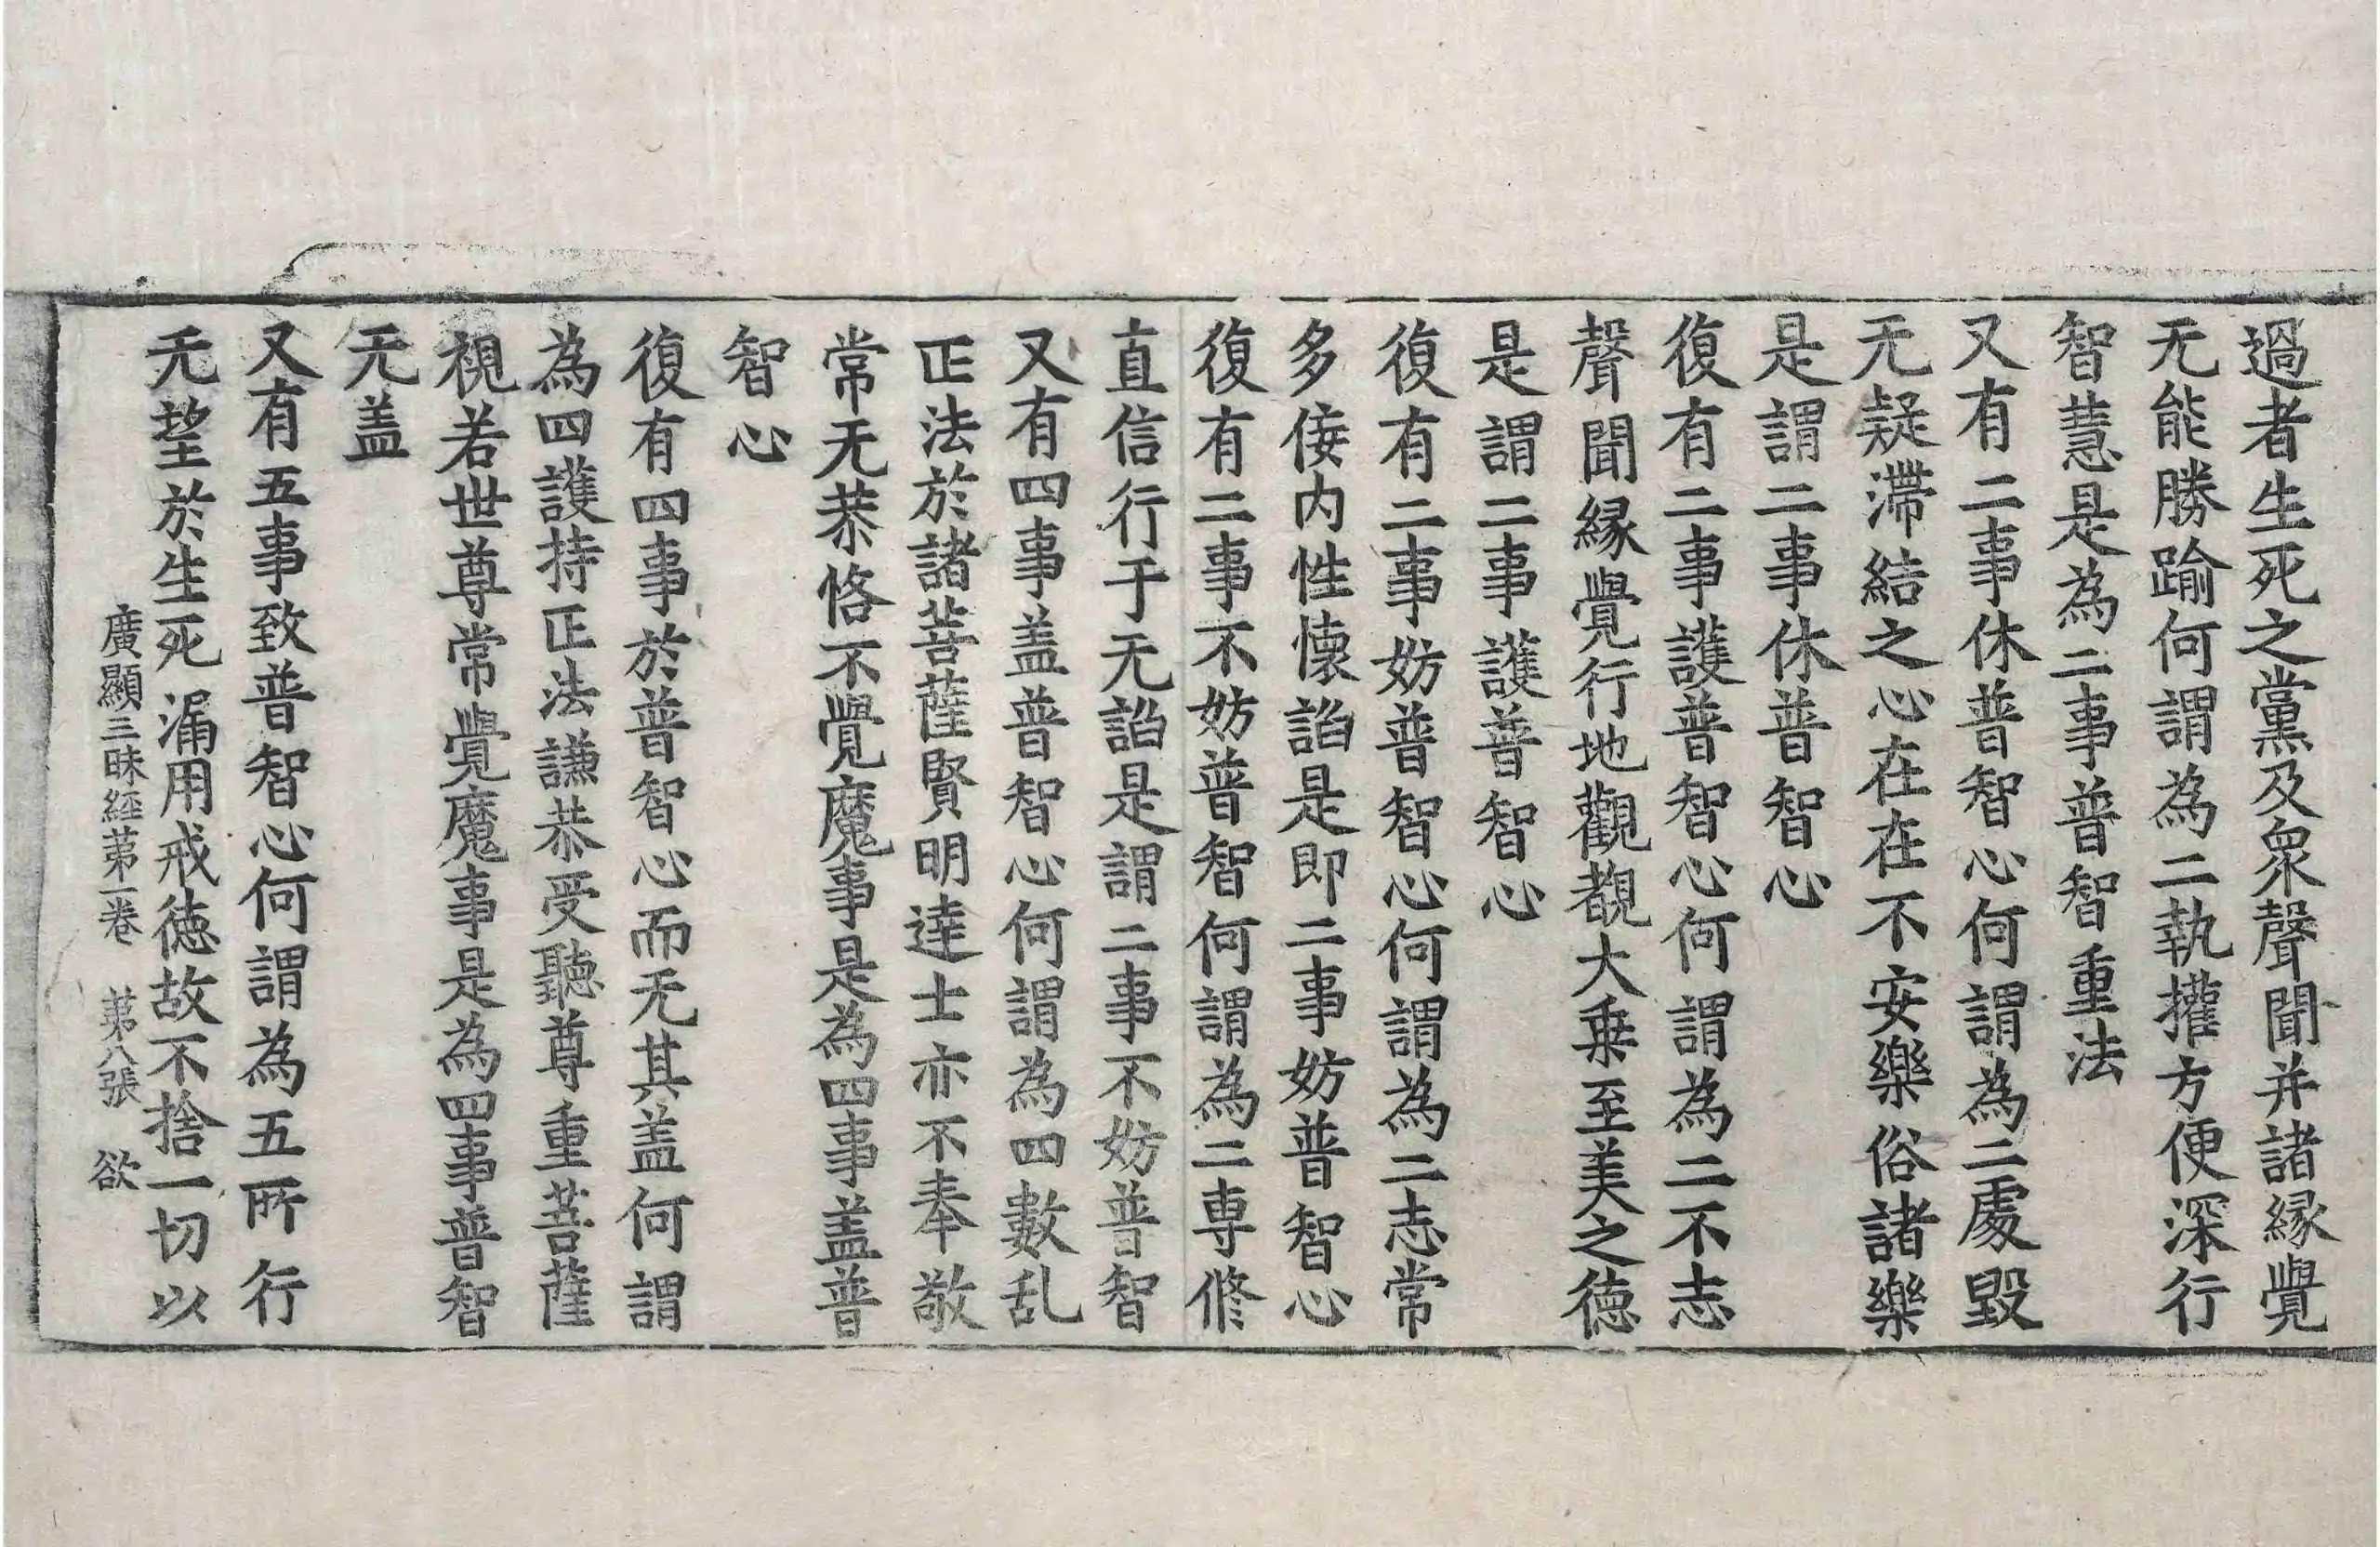 過者生死之黨及衆聲聞并諸縁覺
无能勝踰何謂為二執攉方便深行
智慧是為二事普智重法
又有二事休普智心何謂為二處毀
无疑滯結之心在在不安樂俗諸樂
是謂二事休普智心
復有二事護普智心何謂為二不志
聲聞縁覺行地觀覩大乗至美之徳
是謂二事護普智心
復有二事妨普智心何謂為二志常
多倿内性懐諂是即二事妨普智心
復有二事不妨普智何謂為二専修
直信行于无諂是謂二事不妨普智
又有四事盖普智心何謂為四數乱
正法於諸菩薩賢明達士亦不奉敬
常无恭恪不覺魔事是為四事盖普
智心
復有四事於普智心而无其盖何謂
為四護持正法謙恭受聽尊重菩薩
視若世尊常覺魔事是為四事普智
无盖
又有五事致普智心何謂為五所行
无望於生死漏用戒徳故不捨一切以
廣顯三昧經苐一卷 苐八張 欲